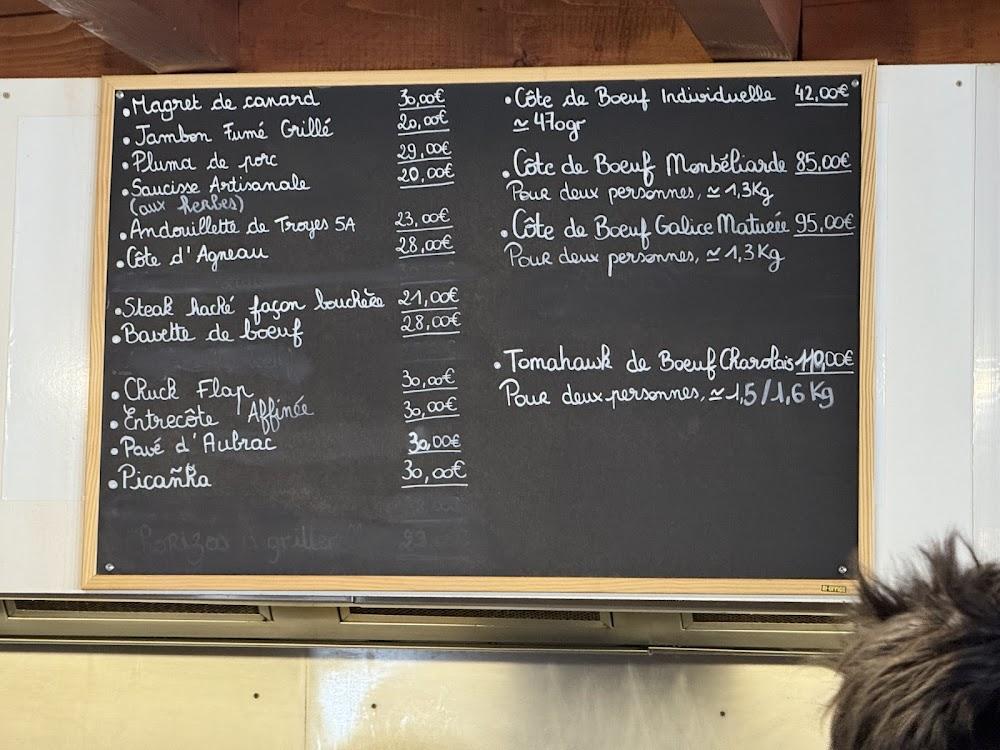 • Magret de canard 30,00€
• Jambon Fumé Grillé 20,00€
• Pluma de porc 29,00€
• Saucisse Artisanale 20,00€
(aux herbes)
• Andouillette de Troyes 5A 23,00€
• Côte d'Agneau 28,00€
• Steak haché façon bouchère 21,00€
• Bavette de boeuf 28,00€
• Chuck Flap 30,00€
• Entrecôte Affinée 30,00€
• Pavé d'Aubrac 30,00€
• Picañha 30,00€
• Côte de Boeuf Individuelle 42,00€
≃ 470gr
• Côte de Boeuf Monbéliarde 85,00€
Pour deux personnes, ≃ 1,3Kg
• Côte de Boeuf Galice Maturée 95,00€
Pour deux personnes, ≃ 1,3Kg
• Tomahawk de Boeuf Charolais 110,00€
Pour deux personnes, ≃ 1,5/1,6 Kg